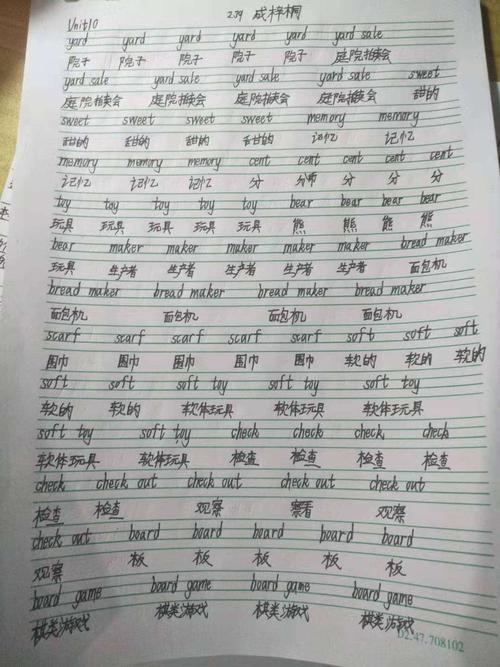 Unit10 2.29 成梓桐
yard yard yard yard yard yard sale
院子 院子 院子 院子 院子 庭院拍卖会
yard sale yard sale yard sale yard sale sweet
庭院拍卖会 庭院拍卖会 庭院拍卖会 庭院拍卖会 甜的
sweet sweet sweet sweet memory memory
甜的 甜的 甜的 甜的 记忆 记忆
memory memory memory cent cent cent cent cent
记忆 记忆 记忆 分 分 分 分
toy toy toy toy toy bear bear bear bear
玩具 玩具 玩具 玩具 玩具 熊 熊 熊 熊
bear maker maker maker maker maker bread maker
玩具 生产者 生产者 生产者 生产者 生产者 面包机
bread maker bread maker bread maker bread maker
面包机 面包机 面包机 面包机
scarf scarf scarf scarf scarf soft soft soft
围巾 围巾 围巾 围巾 围巾 软的 软的 软的
soft soft soft toy soft toy soft toy
软的 软的 软体玩具 软体玩具 软体玩具
soft toy soft toy check check check check
软体玩具 软体玩具 检查 检查 检查 检查
check check out check out check out check out
检查 检查 观察 察看 观察
check out board board board board board
观察 板 板 板 板 板
board game board game board game board game
棋类游戏 棋类游戏 棋类游戏 棋类游戏
02.47.708102